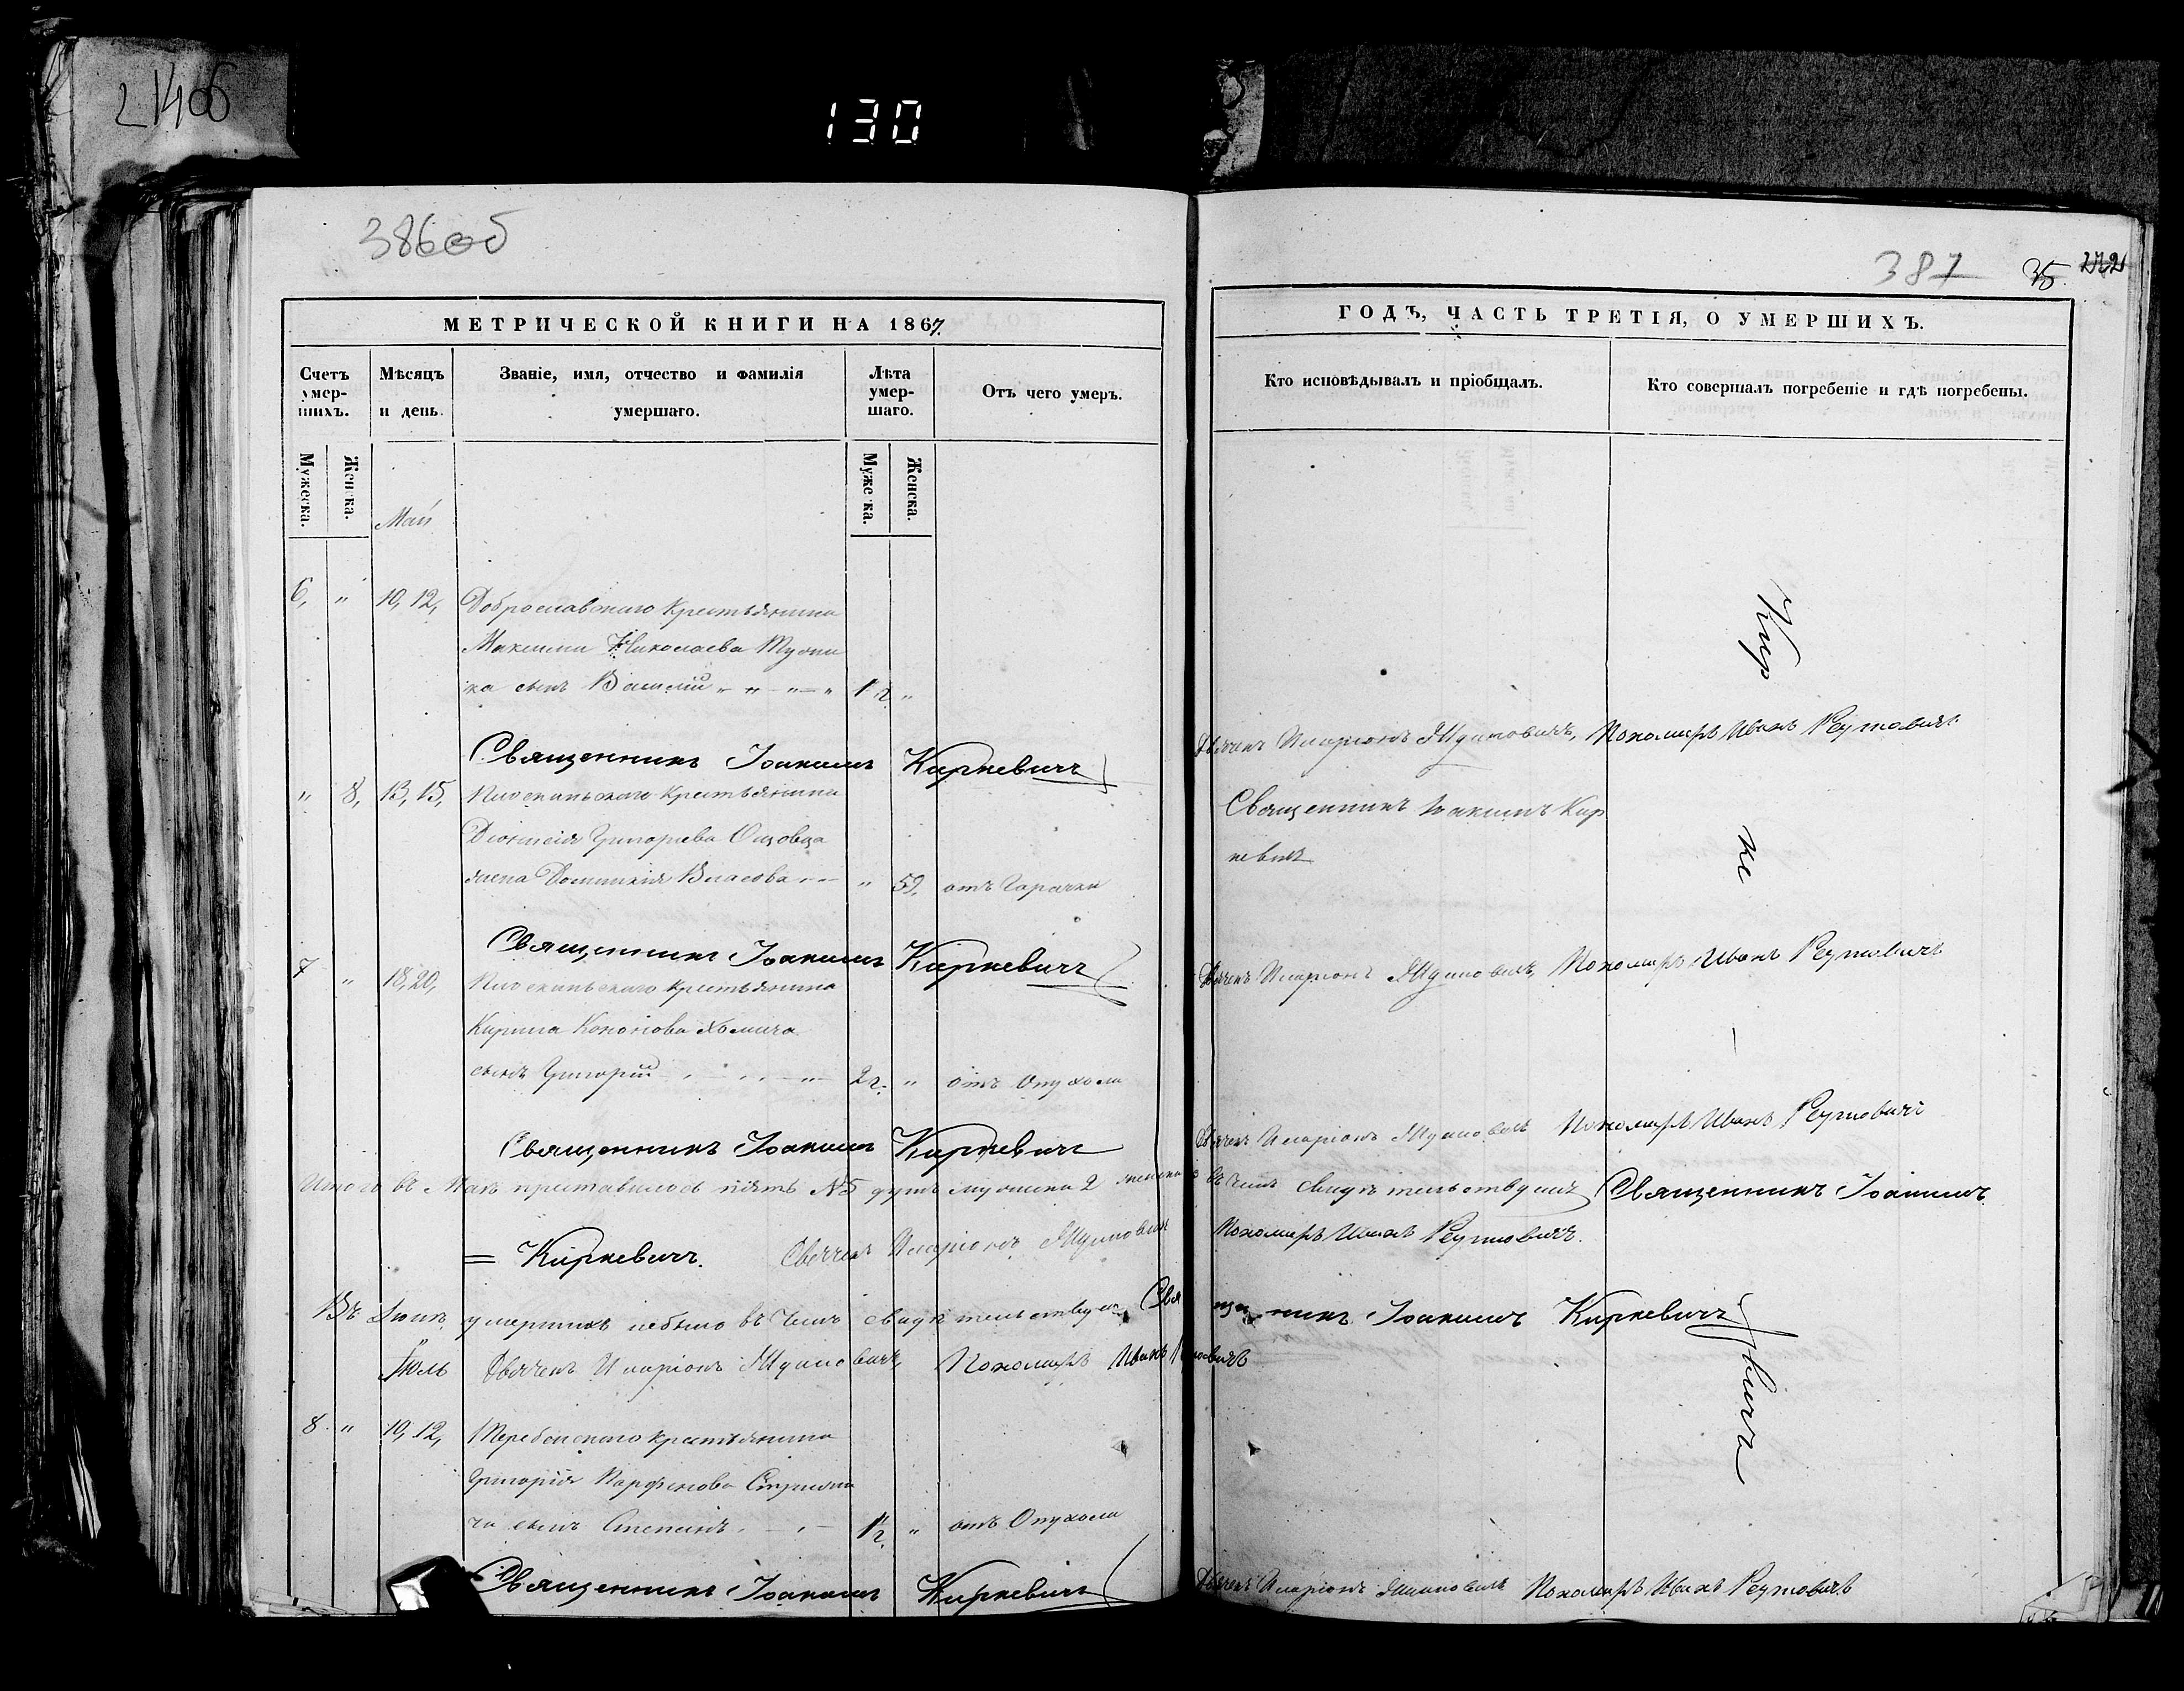 21406
130
386об
МЕТРИЧЕСКОЙ КНИГИ НА 1867.
Счетъ умер-шихъ.
Мѣсяцъ и день.
Званіе, имя, отчество и фамилія умершаго.
Лѣта умер-шаго.
Отъ чего умеръ.
Мужеска.
Женска.
Мужеска.
Женска.
Май
6, " 10, 12, Доброславскаго крестьянина
Максима Николаева
ка сынъ Василій " " " " 1 г. "
Священникъ Іоакимъ Киркевичъ
" 8, 13, 15, крестьянина
Діонисія Григорьева
жена Домникія Власова " 59, отъ Горячки
Священникъ Іоакимъ Киркевичъ
7 " 18, 20, крестьянина
Кирила Кононова Хомича
сынъ Григорій 2 г. " отъ Опухоли
Священникъ Іоакимъ Киркевичъ
Итого въ Маѣ преставилось пять №5 душъ мужеска 2 женска
= Киркевичъ. Иларіонъ
Въ Іюнѣ умершихъ небыло въ чемъ свидѣтельствуемъ Свя
Іюль Дьячекъ Иларіонъ Пономарь Иванъ
8 " 10, 12, Теребенскаго крестьянина
Григорія Парфенова
ча сынъ Степанъ 1 г. " отъ Опухоли
Священникъ Іоакимъ Киркевичъ
387 35 272
ГОДЪ, ЧАСТЬ ТРЕТІЯ, О УМЕРШИХЪ.
Кто исповѣдывалъ и пріобщалъ.
Кто совершалъ погребеніе и гдѣ погребены.
Кир
Дьячекъ Иларіонъ Пономарь Иванъ Реутовичъ
Священникъ Іоакимъ Кир
кевичъ
ке
Дьячекъ Иларіонъ Пономарь Иванъ Реутовичъ
Дьячекъ Иларіонъ Пономарь Иванъ Реутовичъ
въ чемъ свидѣтельствуемъ Священникъ Іоакимъ
Пономарь Иванъ Реутовичъ.
щенникъ Іоакимъ Киркевичъ
вичъ
Дьячекъ Иларіонъ Пономарь Иванъ Реутовичъ